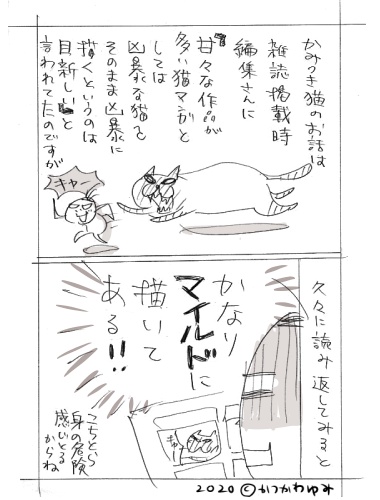 かみつき猫のお話は
雑誌掲載時
編集さんに
甘々な作品が
多い猫マンガと
しては
凶暴な猫を
そのまま凶暴に
描くというのは
目新しいと
言われてたのですが
キャー
久々に読み返してみると
かなり
マイルドに
描いて
ある!!
キャー
こちとら
身の危険
感じとる
からね
2020©かつかわゆみ